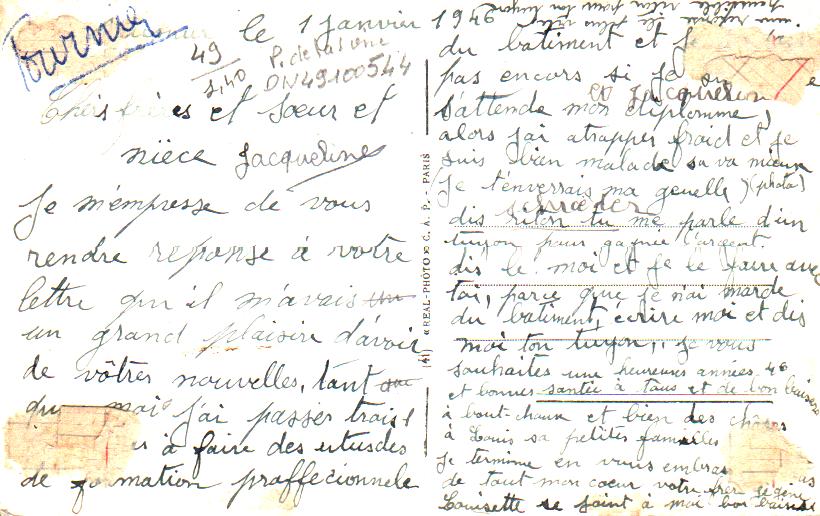 Tournier
le 1 janvier 1946
49
2,40
DN49100544
Chers frères et sœur et
nièce Jacqueline
Je m'empresse de vous
rendre reponse à votre
lettre qu'il m'avais
un grand plaisir d'avoir
de vôtres nouvelles, tant
mais j'ai passer trois
à faire des etusdes
de formation proffecionnelle
(41) REAL-PHOTO C. A. P. - PARIS
une reponse le plus vite
possible
du batiment et
pas encors si je
et Jacqueline
s'attende mon diplomme,
alors j'ai atrapper froid et je
suis bien malade sa va mieux
(je t'enverrais ma geuelle) (photo)
dis riton tu me parle d'un
tuyon pour gagnie l'argent.
dis le moi et je le faire avec
toi, parce que je n'ai marde
du batiment, écrire moi et dis
moi ton tuyon, je vous
souhaites une heureuses années 46
et bonnes santée à tous et de bon baisers
à bout-chaux et bien des choses
à Louis sa petites familles
Je termine en vous embras
de tout mon coeur votre frer
Louisette se joint à moi bon baisers